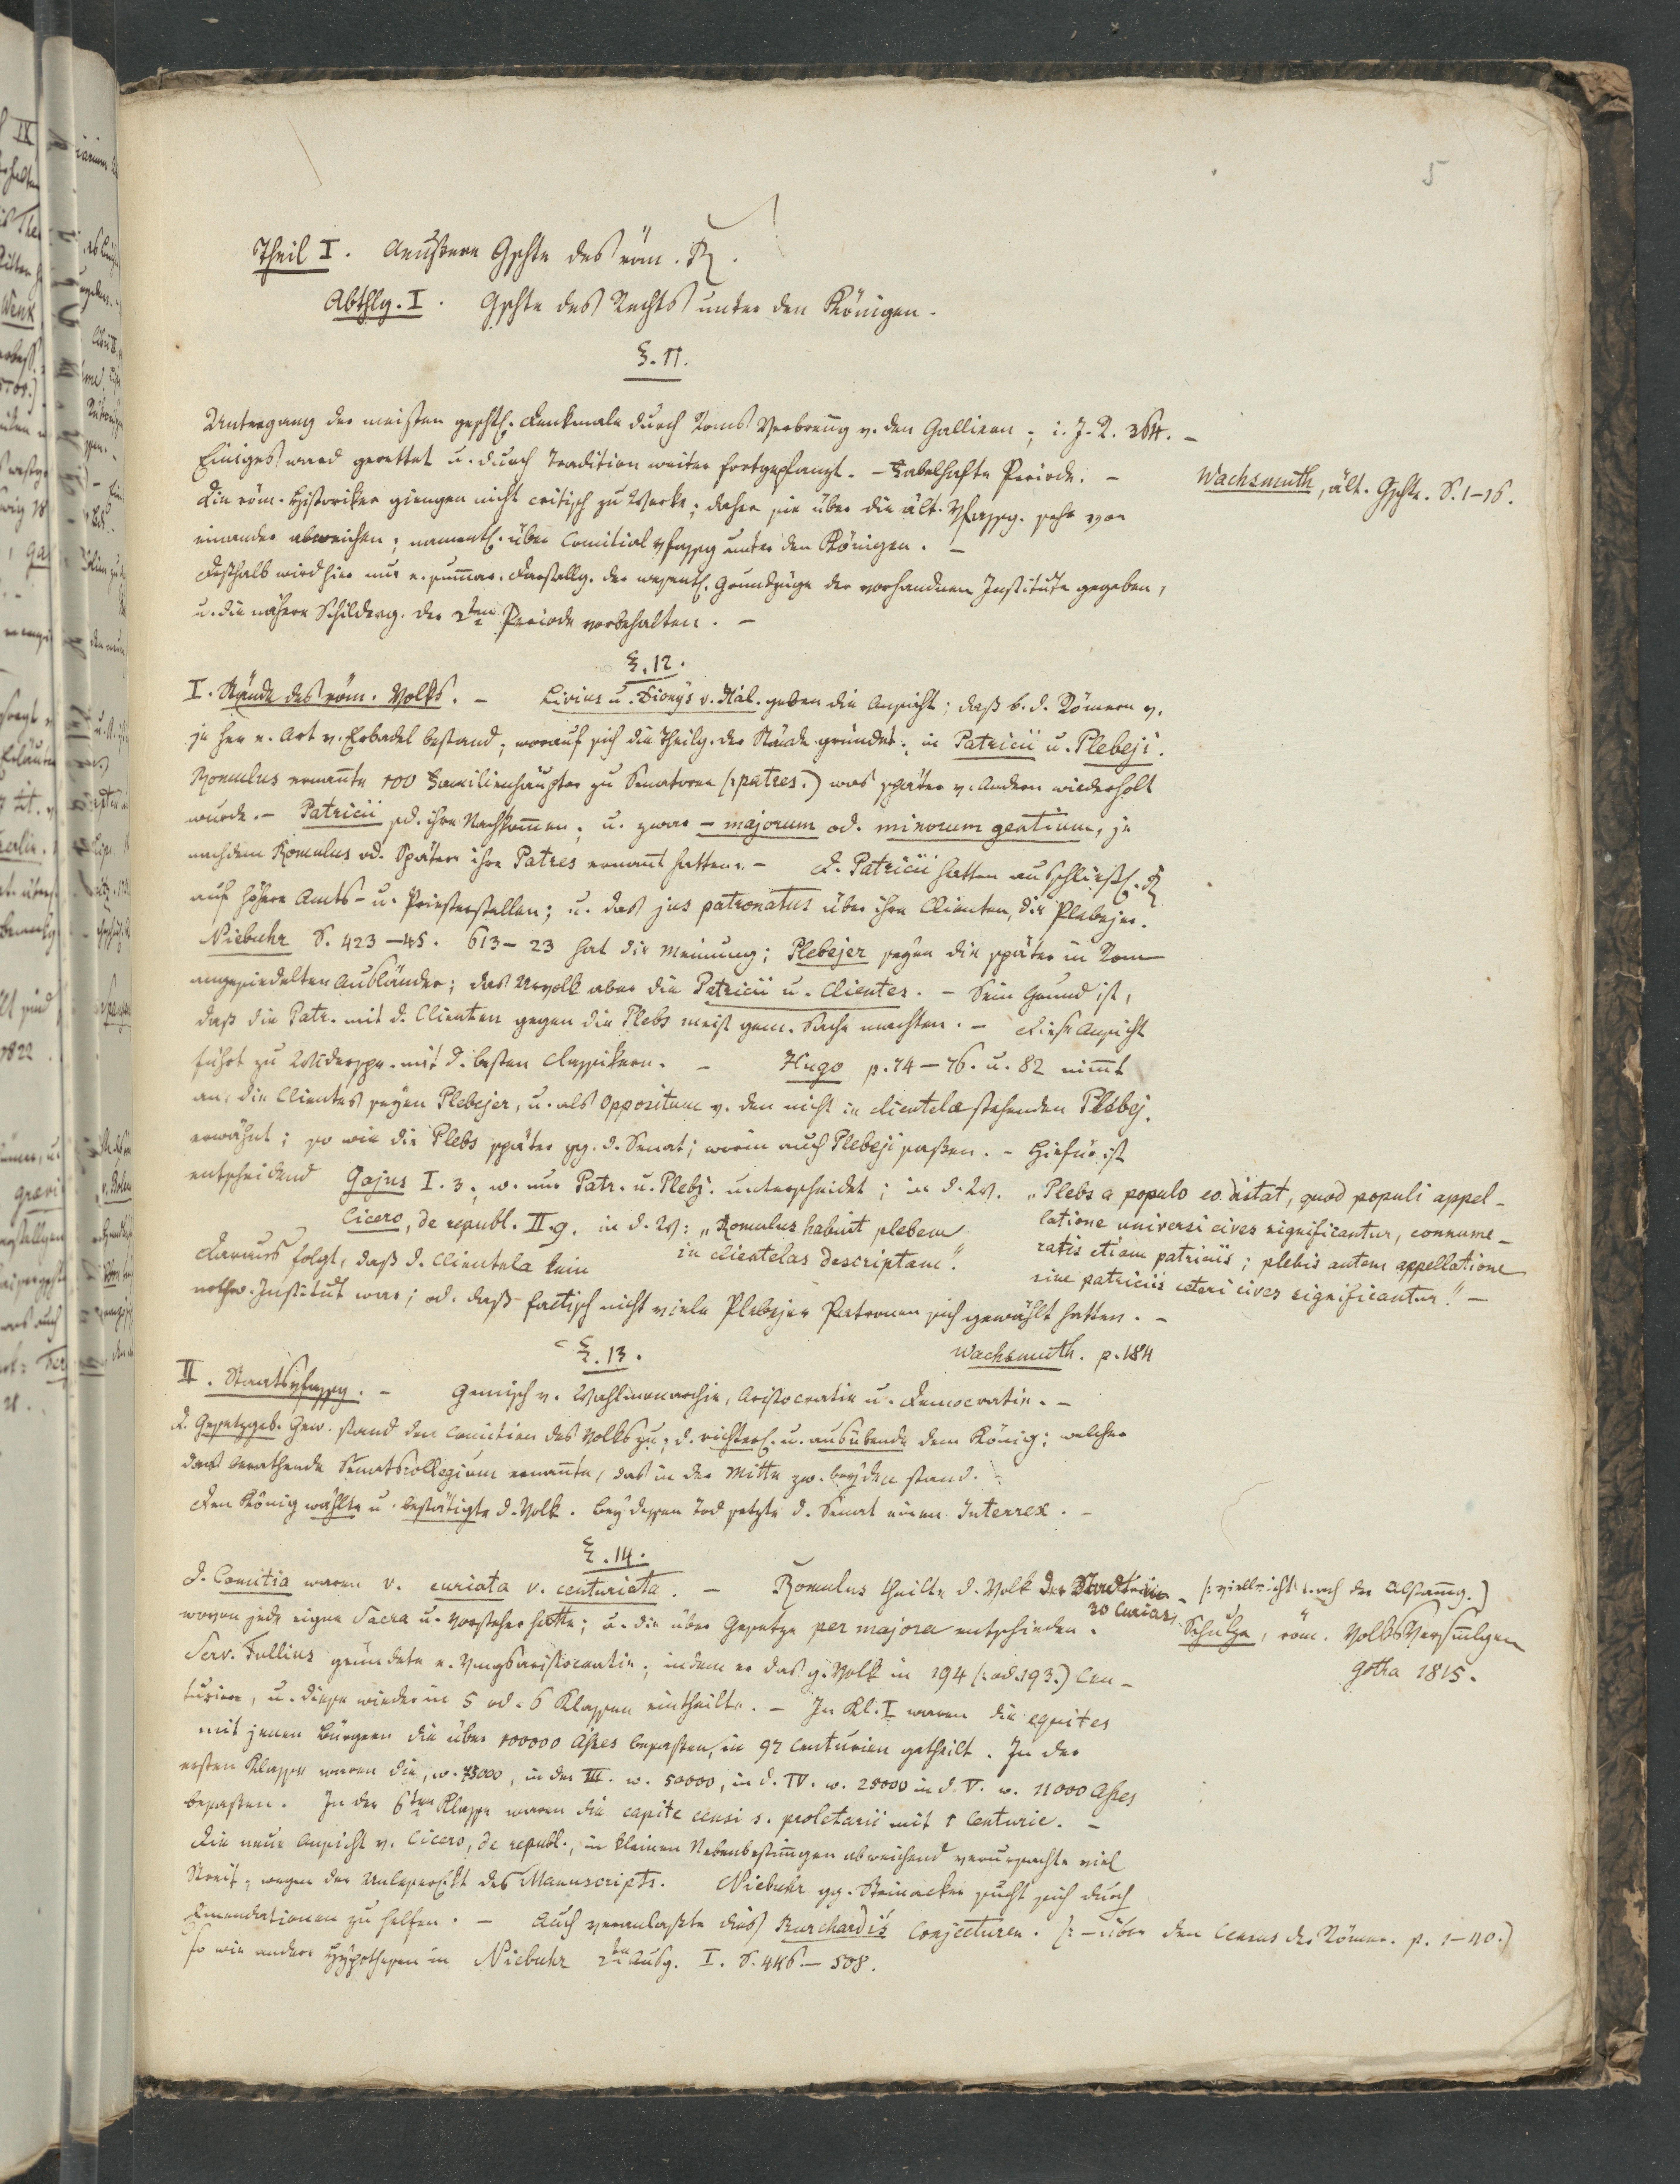 5
Theil I. Aeußere Gschte des röm. R.
Abthlg. I. Gschte des Rechts unter den Königen.
§. 11.
Untergang der meisten geschtl. Denkmale durch Roms Verbreñg v. den Galliern; i. J. R. 364. –
Einiges ward gerettet u. durch Tradition weiter fortgepflanzt. – Fabelhafte Periode. –
Wachsmuth, ält. Gschte. S. 1–16.
Die röm. Historiker giengen nicht critisch zu Werke; daher sie über die ält. Vfassg. sehr von
einander abweichen; namentl. über Comitialvfassg unter den Königen. –
Deßhalb wird hier nur e. sum̄ar. Darstellg. der wesentl. Grundzüge der vorhandnen Institute gegeben,
u. die nähere Schilderg. der 2ten Periode vorbehalten. –
§. 12.
I. Stände des röm. Volks. – Livius u. Dionys v. Hal. geben die Ansicht; daß b. d. Römern v.
je her e. Art v. Erbadel bestand, worauf sich die Theilg. der Stände gründet; in Patricii u. Plebeji.
Romulus ernañte 100 Familienhäupter zu Senatoren (:patres.) was später v. Andern wiederholt
wurde. – Patricii sd. ihre Nachkom̄en; u. zwar – majorum od. minorum gentium, je
nachdem Romulus od. Spätere ihre Patres ernañt hatten. – D. Patricii hatten ausschließl. R
auf höhere Amts- u. Priesterstellen; u. das jus patronatus über ihre Clienten, die Plebejer.
Niebuhr S. 423–45. 613–23 hat die Meinung; Plebejer seyen die später in Rom
angesiedelten Ausländer; das Urvolk aber die Patricii u. Clientes. – Sein Grund ist,
daß die Patr. mit d. Clienten gegen die Plebs meist gem. Sache machten. – Diese Ansicht
führt zu Widersp. mit d. besten Classikern. – Hugo p. 74–76. u. 82 nim̄t
an, die Clientes seyen Plebejer, u. als Oppositum v. den nicht in clientela stehenden Plebej.
erwähnt; so wie die Plebs später gg. d. Senat; worin auch Plebeji saßen. – Hiefür ist
entscheidend Gajus I. 3, w. nur Patr. u. Plebj. unterscheidet; in d. W. „Plebs a populo eo distat, quod populi appel-
latione universi cives significantur, connume-
ratis etiam patriciis; plebis autem appellatione
sine patriciis ceteri cives significantur.“ –
Cicero, de republ. II. 9. in d. W: „Romulus habuit plebem
in clientelas descriptam“.
Daraus folgt, daß d. Clientela kein
nothw. Institut war; od. daß factisch nicht viele Plebejer Patronen sich gewählt hatten. –
Wachsmuth. p. 184
§. 13.
II. Staatsvfassg. – Gemisch v. Wahlmonarchie, Aristocratie u. Democratie. –
D. Gesetzgeb. Gew. stand den Comitien des Volks zu; d. richterl. u. ausübende dem König; welcher
das berathende Senatscollegium ernañte, das in der Mitte zw. beyden stand. –
Den König wählte u. bestätigte d. Volk. Bey dessen Tod setzte d. Senat einen Interrex. –
§. 14.
D. Comitia waren v. curiata v. centuriata. – Romulus theilte d. Volk
30 Curias, (: vielleicht nach der Abstam̄g.)
wovon jede eigne Sacra u. Vorsteher hatte; u. die über Gesetze per majora entschieden.
Schulze, röm. VolksVersm̄lgen
Gotha 1815.
Serv. Tullius gründete e. Vmgsaristocratie; indem er das g. Volk in 194 (: od. 193.) Cen-
turien, u. diese wieder in 5 od. 6 Klassen eintheilte. – In Kl. I waren die equites
mit jenen Bürgern die über 100000 Asses besaßen, in 97 Centurien getheilt. In der
ersten Klasse waren die, w. 75000, in der III. w. 50000, in d. IV. w. 25000 in d. V. w. 11000 Asses
besaßen. In der 6ten Klasse waren die capite censi s. proletarii mit 1 Centurie. –
Die neue Ansicht v. Cicero, de republ., in kleinen Nebenbestim̄gen abweichend verursachte viel
Streit, wegen der Unleserlkt des Manuscripts. Niebuhr gg. Steinacker sucht sich durch
Emendationen zu helfen. – Auch veranlaßte dies Burchardi's Conjecturen. (: – über den Census der Römer. p. 1–40.)
so wie andere Hypothesen in Niebuhr 2te Ausg. I. S. 446–508.